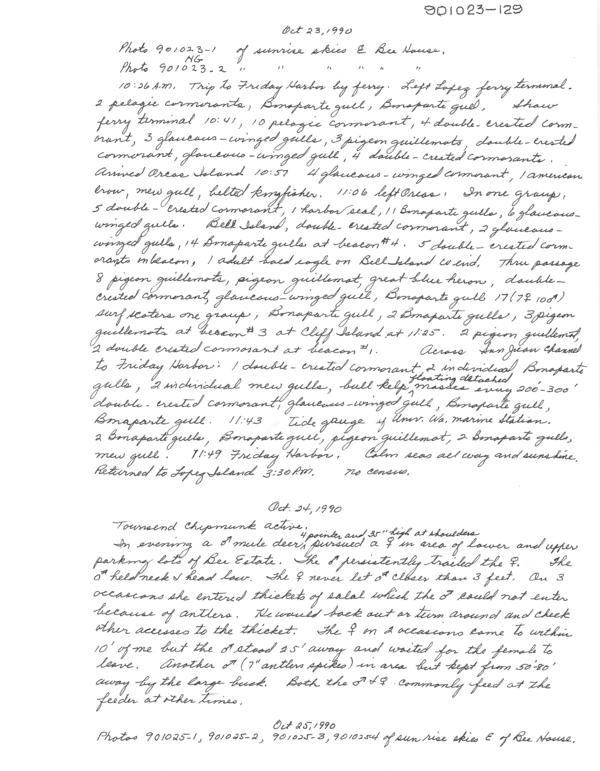 901023-129
Oct 23, 1990
Photo 901023-1 of sunrise skies E Bee House.
NG
Photo 901023-2 " " " " "
10:26 A.M. Trip to Friday Harbor by ferry. Left Lopez ferry terminal.
2 pelagic cormorants, Bonaparte gull, Bonaparte gull. Shaw
ferry terminal 10:41, 10 pelagic cormorant, 4 double-crested corm-
orant, 3 glaucous-winged gulls, 3 pigeon guillemots, double-crested
cormorant, glaucous-winged gull, 4 double-crested cormorants.
Arrived Orcas Island 10:57 4 glaucous-winged cormorant, 1 american
crow, mew gull, belted kingfisher. 11:06 left Orcas. In one group,
5 double-crested cormorant, 1 harbor seal, 11 Bonaparte gulls, 6 glaucous-
winged gulls. Bell Island, double-crested cormorant, 2 glaucous-
winged gulls, 14 Bonaparte gulls at beacon #4. 5 double-crested corm-
orants on beacon, 1 adult bald eagle on Bell Island W end. Thru passage
8 pigeon guillemots, pigeon guillemot, great blue heron, double-
crested cormorant, glaucous-winged gull, Bonaparte gull 17 (7♀ 10♂)
surf scoters one group, Bonaparte gull, 2 Bonaparte gulls, 3 pigeon
guillemots at beacon #3 at Cliff Island at 11:25. 2 pigeon guillemot,
2 double crested cormorant at beacon #1. Across San Juan Channel
to Friday Harbor: 1 double-crested cormorant, 2 individual, Bonaparte
gulls, 2 individual mew gulls, bull kelp floating detached masses every 200'-300'
double-crested cormorant, glaucous-winged gull, Bonaparte gull,
Bonaparte gull. 11:43 tide gauge of Univ. Wa. marine Station.
2 Bonaparte gulls, Bonaparte gull, pigeon guillemot, 2 Bonaparte gulls,
mew gull. 11:49 Friday Harbor. Calm seas all way and sunshine.
Returned to Lopez Island 3:30 P.M. no census.
Oct. 24, 1990
Townsend Chipmunk active.
In evening a ♂ mule deer, 4 pointer and 35" high at shoulders pursued a ♀ in area of lower and upper
parking lots of Bee Estate. The ♂ persistently trailed the ♀. The
♂ held neck & head low. The ♀ never let ♂ closer than 3 feet. On 3
occasions she entered thickets of salal which the ♂ could not enter
because of antlers. He would back out or turn around and check
other accesses to the thicket. The ♀ on 2 occasions came to within
10' of me but the ♂ stood 25' away and waited for the female to
leave. Another ♂ (7" antlers spikes) in area but kept from 50'-80'
away by the large buck. Both the ♂ & ♀ commonly feed at the
feeder at other times.
Oct 25, 1990
Photos 901025-1, 901025-2, 901025-3, 901025-4 of sun rise skies E of Bee House.